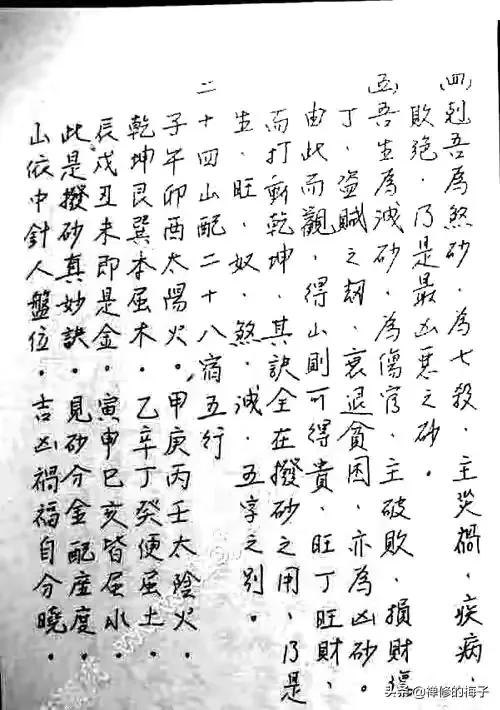 (四)剋吾為煞砂、為七殺、主災禍、疾病、
敗絕、乃是最凶惡之砂。
(五)吾生為減砂、為傷官、主破敗、損財傷
丁、盜賊之類、衰退貧困、亦為凶砂。
由此而觀、得山則可得貴、旺丁旺財、
而打動乾坤、其訣全在撥砂之用、乃是
生、旺、奴、煞、減、五字之別。
二十四山配二十八宿五行
子午卯酉太陽火。甲庚丙壬太陰火。
乾坤艮巽本属木。乙辛丁癸便属土。
辰戌丑未即是金。寅申巳亥皆属水。
此是撥砂真妙訣。見砂分金配座度。
山依中針人盤位。吉凶禍福自分曉。
头条@禅修的梅子